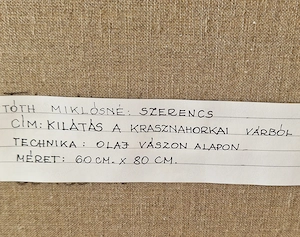 TÓTH MIKLÓSNÉ: SZERENCS
CÍM: KILÁTÁS A KRASZNAHORKAI VÁRBÓL
TECHNIKA: OLAJ VÁSZON ALAPON
MÉRET: 60 CM. X 80 CM.